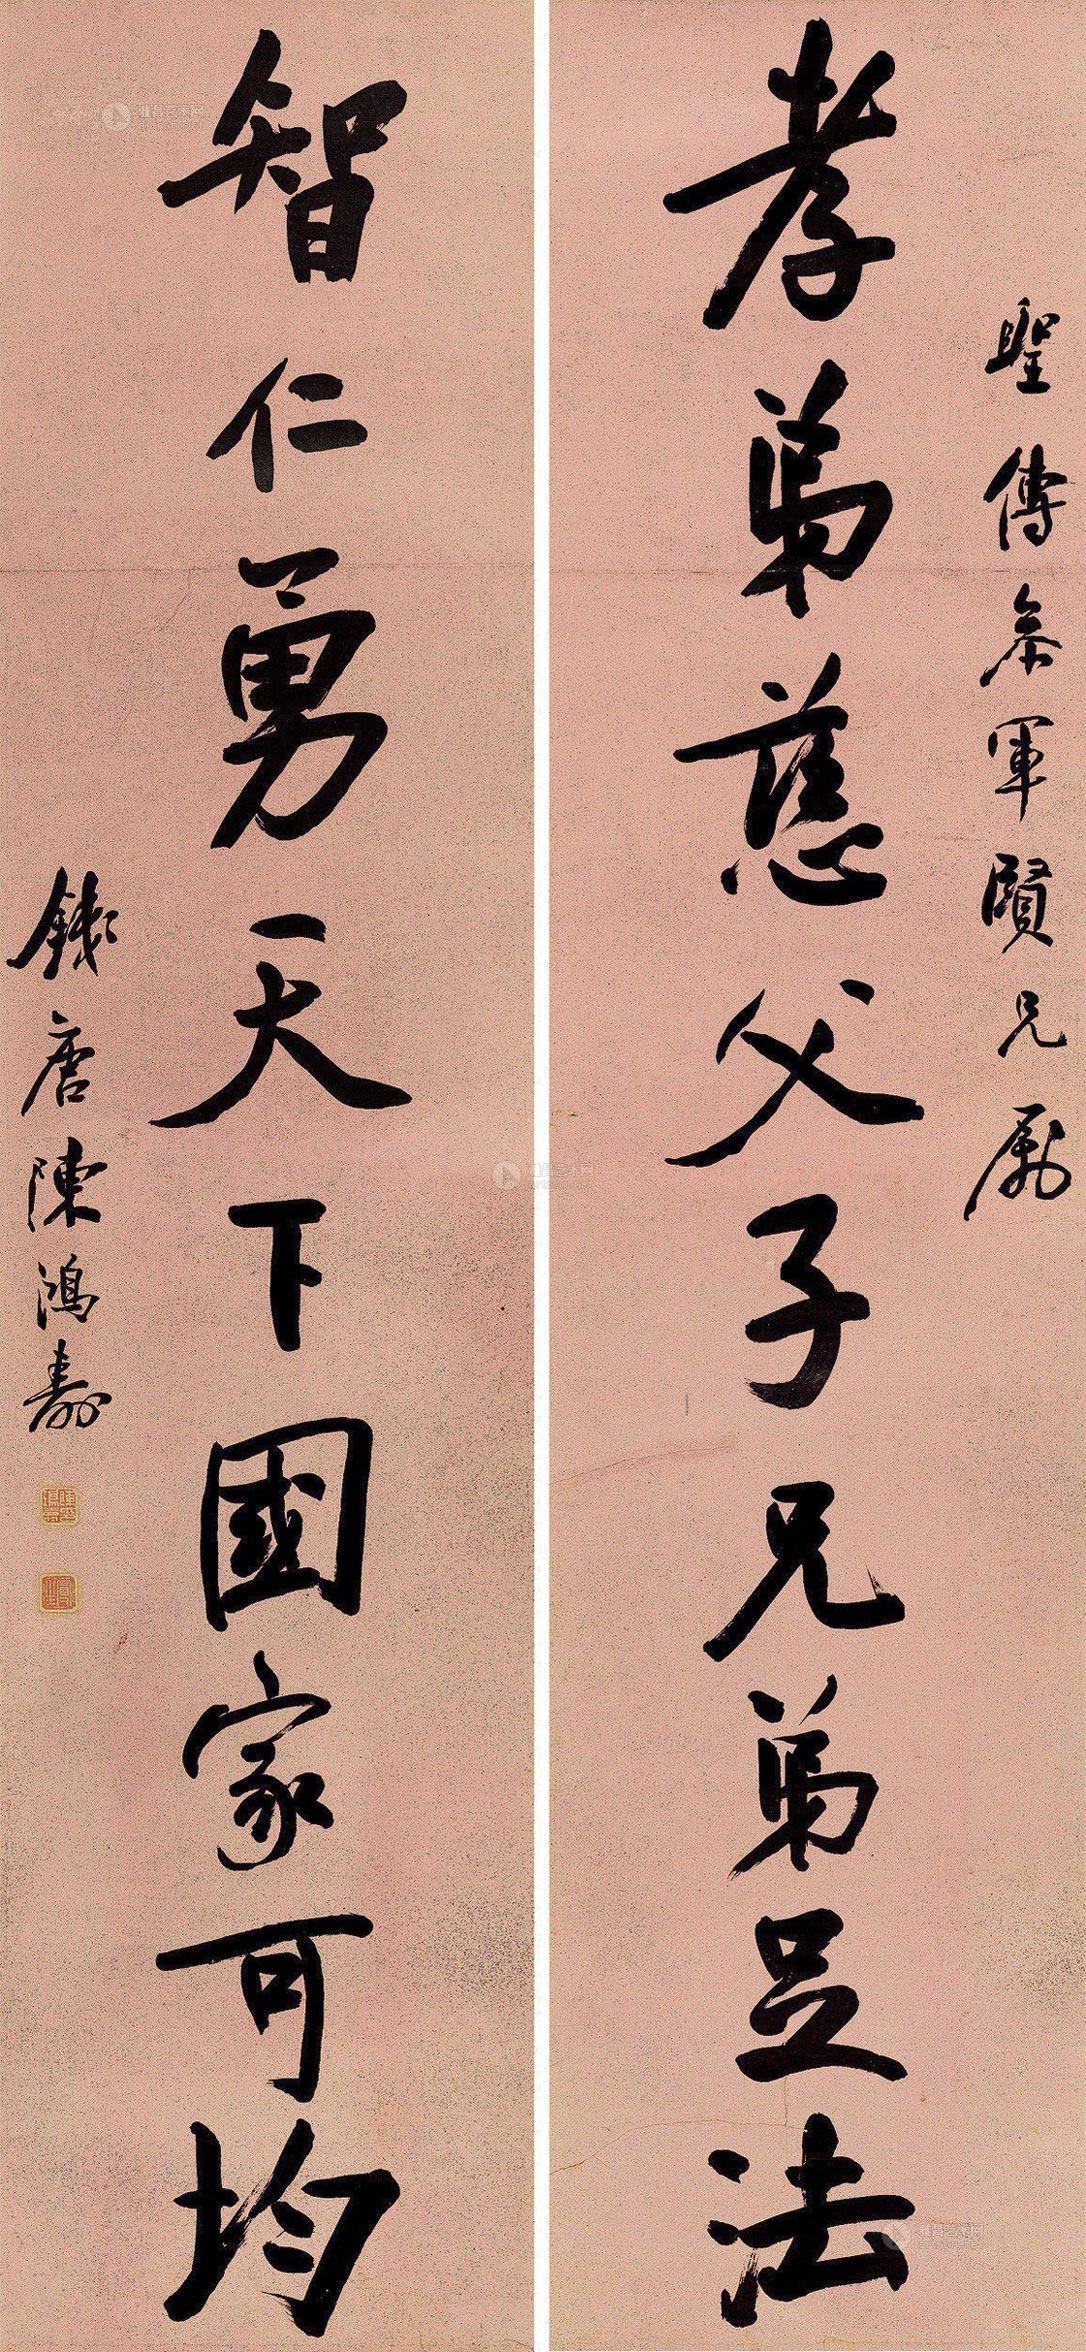 聖傳參軍賢兄屬
孝弟慈父子兄弟足法
智仁勇天下國家可均
錢唐陳鴻壽